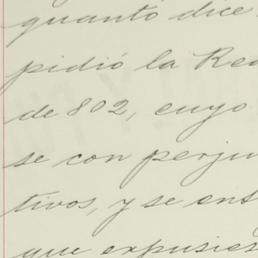 quanto dice
pidió la Rea
de 802, cuyo
se con perju
tivos, y se ent
que expusies